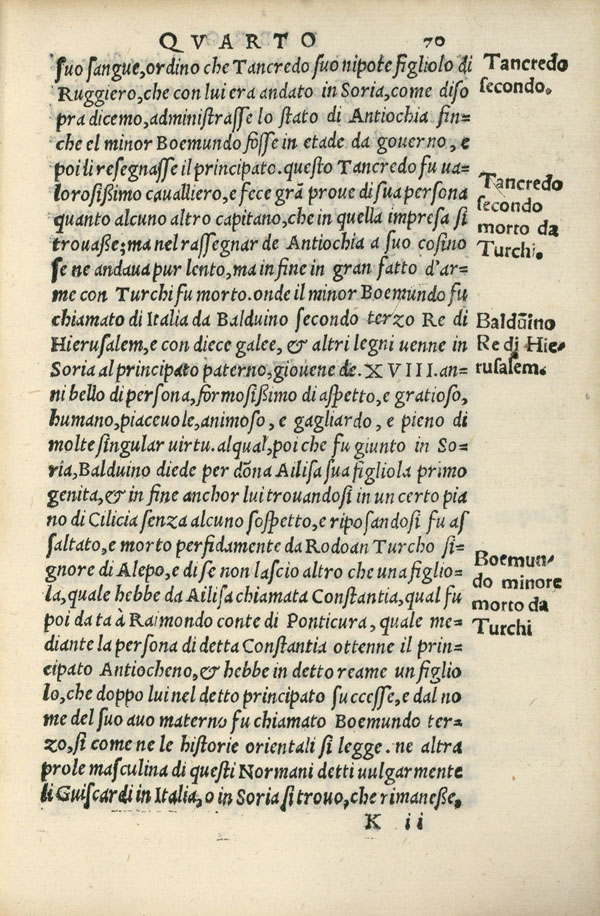 QVARTO 70
suo sangue, ordino che Tancredo suo nipote figliolo di
Ruggiero, che con lui era andato in Soria, come diso
pra dicemo, administrasse lo stato di Antiochia fin=
che el minor Boemundo fosse in etade da governo, e
poi li resegnasse il principato. questo Tancredo fu ua=
lorosißimo caualliero, e fece grã proue di sua persona
quanto alcuno altro capitano, che in quella impresa si
trouaße; ma nel rassegnar de Antiochia a suo cosino
se ne andaua pur lento, ma in fine in gran fatto d'ar=
me con Turchi fu morto. onde il minor Boemundo fu
chiamato di Italia da Balduino secondo terzo Re di
Hierusalem, e con diece galee, & altri legni uenne in
Soria al principato paterno, giouene de. XVIII. an=
ni bello di persona, formosißimo di aspetto, e gratioso,
humano, piaceuole, animoso, e gagliardo, e pieno di
molte singular uirtu. al qual, poi che fu giunto in So=
ria, Balduino diede per dõna Ailisa sua figliola primo
genita, & in fine anchor lui trouandosi in un certo pia
no di Cilicia senza alcuno sospetto, e riposandosi fu as
saltato, e morto perfidamente da Rodoan Turcho si=
gnore di Alepo, e di se non lascio altro che una figlio=
la, quale hebbe da Ailisa chiamata Constantia, qual fu
poi data à Raimondo conte di Ponticura, quale me=
diante la persona di detta Constantia ottenne il prin=
cipato Antiocheno, & hebbe in detto reame un figlio
lo, che doppo lui nel detto principato successe, e dal no
me del suo auo materno fu chiamato Boemundo ter=
zo, si come ne le historie orientali si legge. ne altra
prole masculina di questi Normani detti uulgarmente
li Guiscardi in Italia, o in Soria si trouo, che rimaneße,
K ii
Tancredo
secondo.
Tancredo
secondo
morto da
Turchi.
Baldũino
Re di Hie=
rusalem.
Boemun=
do minore
morto da
Turchi